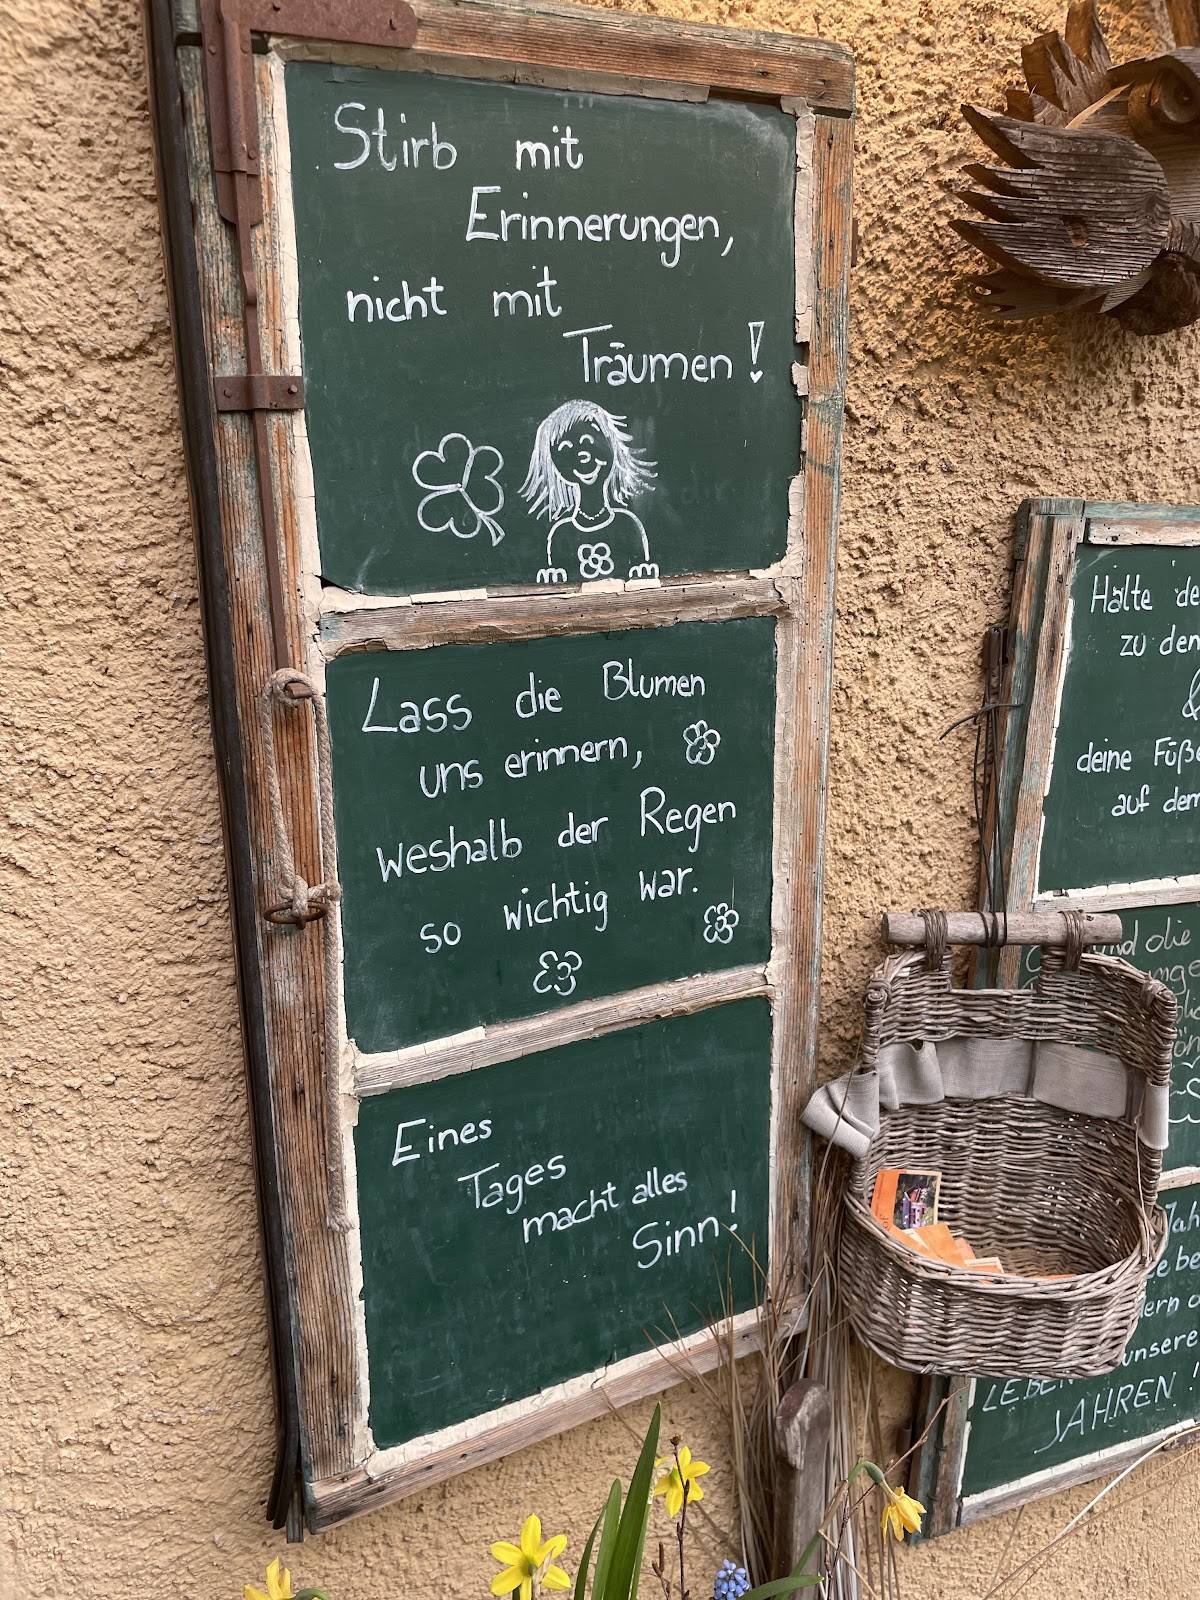 Stirb mit
Erinnerungen,
nicht mit
Träumen!
Lass die Blumen
uns erinnern,
weshalb der Regen
so wichtig war.
Eines
Tages
macht alles
Sinn!
Halte de
zu den
&
deine Füße
auf dem
und die
unsere
LEBEN
JAHREN!